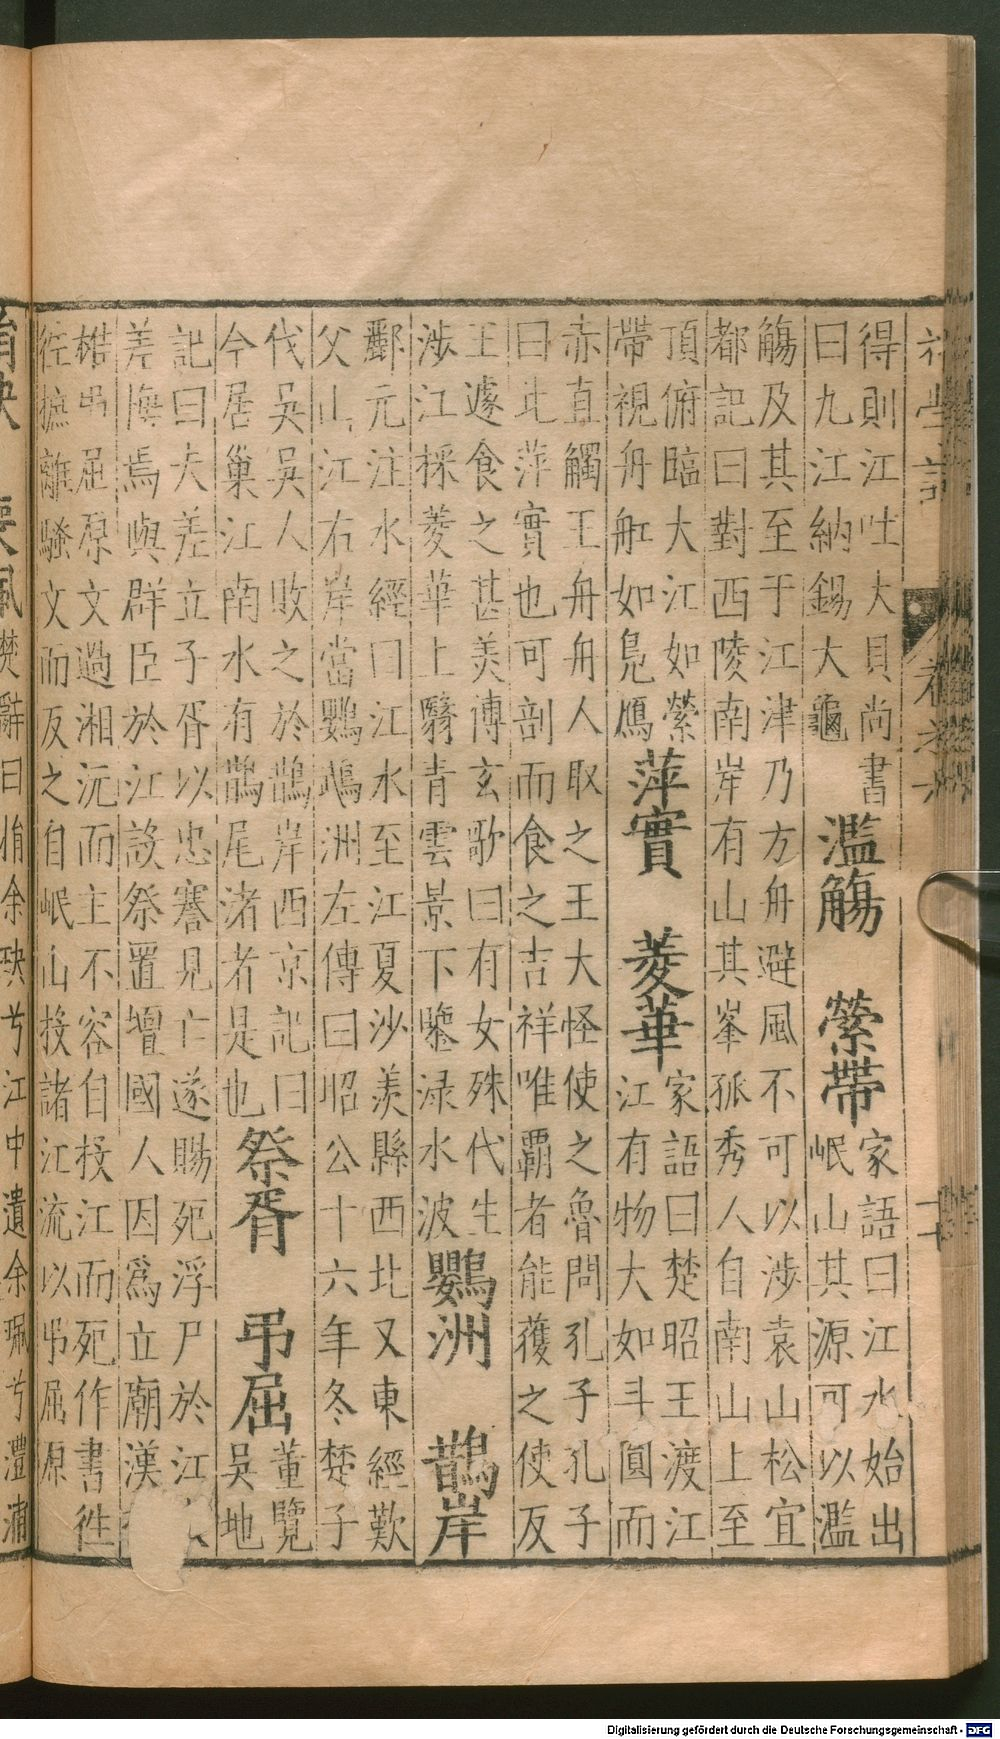 初學記　卷六　十
得則江吐大貝尚書
曰九江納錫大龜
濫觴　縈帶
家語曰江水始出
岷山其源可以濫
觴及其至于江津乃方舟避風不可以涉袁山松宜
都記曰對西陵南岸有山其峯孤秀人自南山上至
頂俯臨大江如縈
帶視舟舡如鳧鴈
萍實　菱華
家語曰楚昭王渡江
江有物大如斗圓而
赤直觸王舟舟人取之王大怪使之魯問孔子孔子
曰此萍實也可剖而食之吉祥唯覇者能獲之使反
王遂食之甚美傅玄歌曰有女殊代生
涉江採菱華上翳青雲景下鑒淥水波
鸚洲　鵲岸
酈元注水經曰江水至江夏沙羡縣西北又東經歎
父山江右岸當鸚鵡洲左傳曰昭公十六年冬楚子
代吳吳人敗之於鵲岸西京記曰
今居巢江南水有鵲尾渚者是也
祭胥　弔屈
董覽
吳地
記曰夫差立子胥以忠謇見亡遂賜死浮尸於江
差悔焉與群臣於江設祭置壇國人因爲立廟漢
弔屈原文過湘沅而主不容自投江而死作書徃
徃摭離騷文而反之自岷山投諸江流以弔屈原
楚辭曰捐余玦兮江中遺余珮兮澧浦
Digitalisierung gefördert durch die Deutsche Forschungsgemeinschaft - DFG